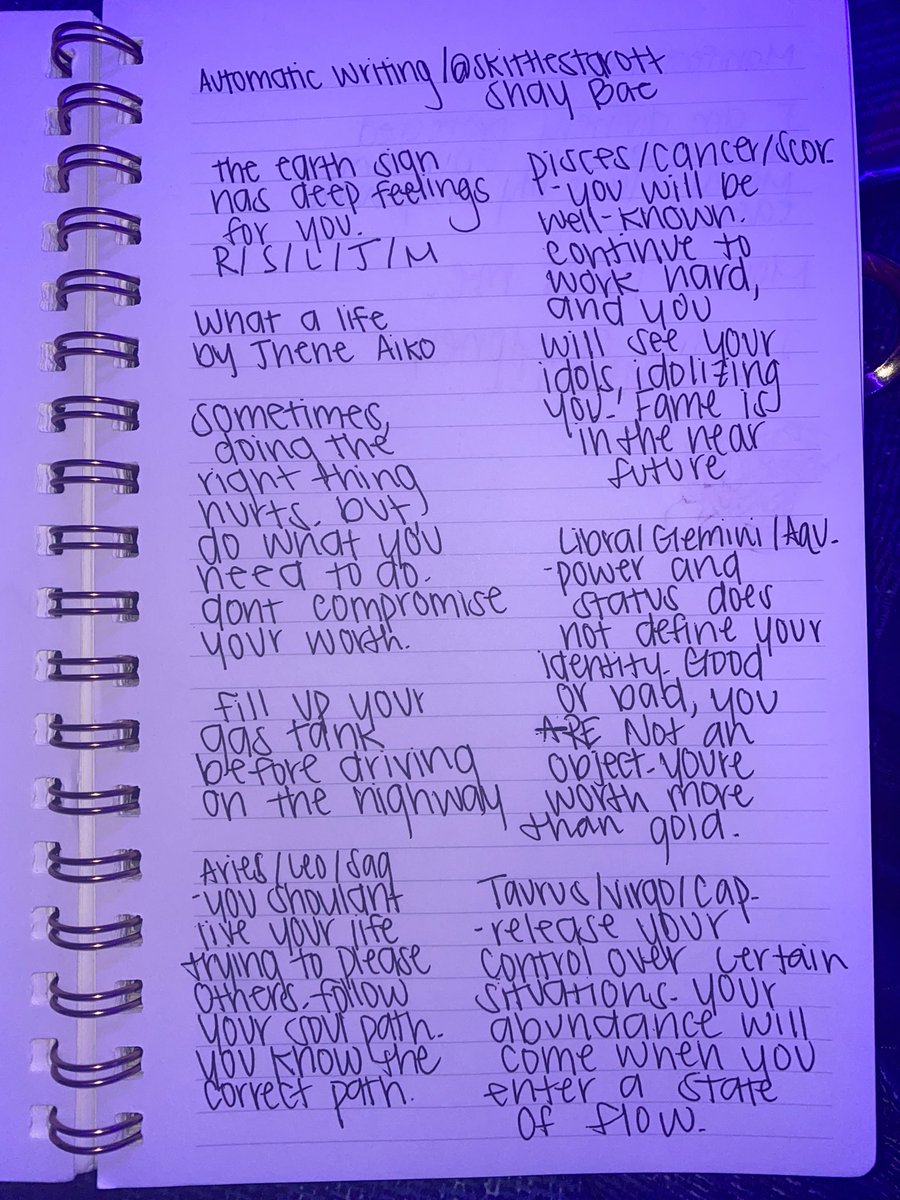 Automatic Writing/@skittlestarott
Shay Bae
the earth sign
has deep feelings
for you.
R/S/L/J/M
What a life
by Jhene Aiko
sometimes,
doing the
right thing
hurts. but,
do what you
need to do.
dont compromise
your worth.
fill up your
gas tank
before driving
on the highway
Aries/Leo/Sag
-you shouldnt
live your life
trying to please
others. follow
your soul path.
you know the
correct path.
pisces/cancer/scor.
-you will be
well-known.
continue to
work hard,
and you
will see your
idols, idolizing
you. Fame is
in the near
future
Libra/Gemini/Aqu.
-power and
status does
not define your
identity. Good
or bad, you
ARE Not an
object. youre
worth more
than gold.
Taurus/Virgo/Cap.
-release your
control over certain
situations. your
abundance will
come when you
enter a state
of flow.